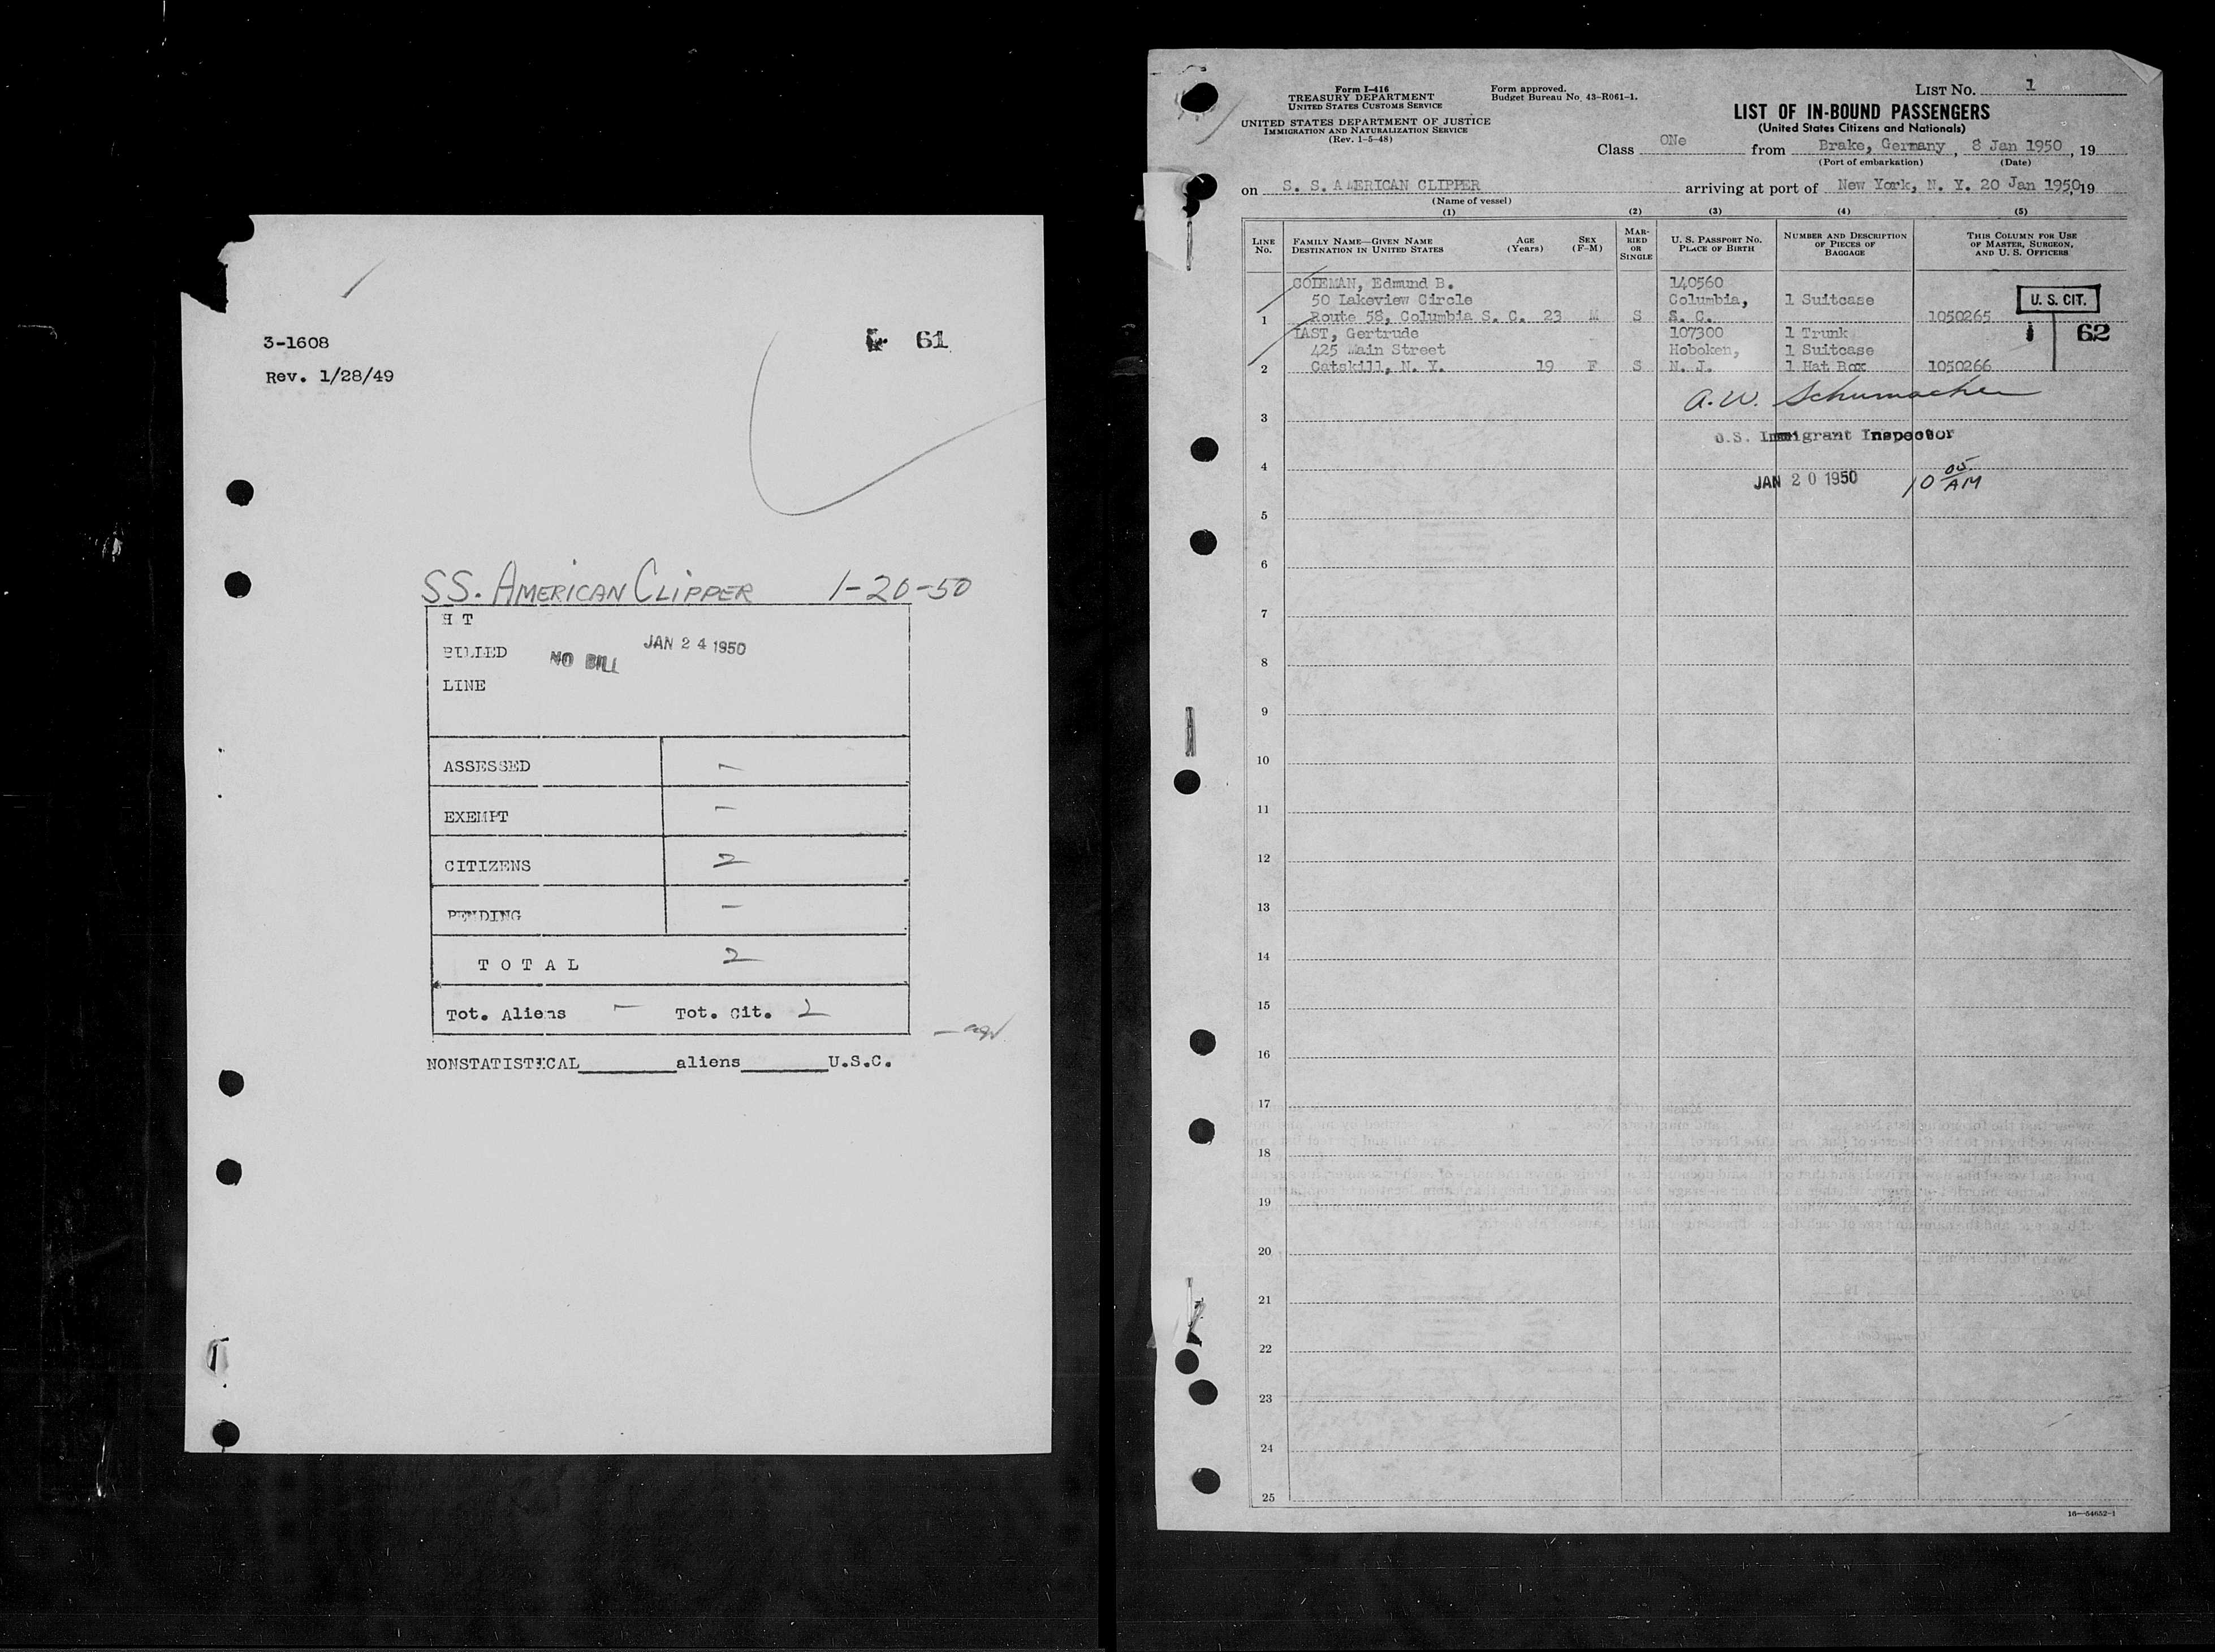 3-1608
Rev. 1/28/49
61
SS. AMERICAN CLIPPER 1-20-50
H T
BILLED NO BILL JAN 24 1950
LINE
ASSESSED —
EXEMPT —
CITIZENS 2
PENDING —
T O T A L 2
Tot. Aliens — Tot. Cit. 2
NONSTATISTICAL________aliens________U.S.C.
Form I-416
TREASURY DEPARTMENT
UNITED STATES CUSTOMS SERVICE
UNITED STATES DEPARTMENT OF JUSTICE
IMMIGRATION AND NATURALIZATION SERVICE
(Rev. 1-5-48)
Form approved.
Budget Bureau No. 43-R061-1.
LIST NO. 1
LIST OF IN-BOUND PASSENGERS
(United States Citizens and Nationals)
Class ONe from Brake, Germany, 8 Jan 1950, 19
(Port of embarkation) (Date)
on S. S. AMERICAN CLIPPER arriving at port of New York, N. Y. 20 Jan 1950,19
(Name of vessel)
(1) (2) (3) (4) (5)
LINE NO.
FAMILY NAME—GIVEN NAME
DESTINATION IN UNITED STATES
AGE (Years)
SEX (F-M)
MARRIED OR SINGLE
U. S. PASSPORT NO.
PLACE OF BIRTH
NUMBER AND DESCRIPTION OF PIECES OF BAGGAGE
THIS COLUMN FOR USE OF MASTER, SURGEON, AND U. S. OFFICERS
COLEMAN, Edmund B. 140560
50 Lakeview Circle Columbia, 1 Suitcase U. S. CIT.
1 Route 58, Columbia S. C. 23 M S S. C. 1050265
LAST, Gertrude 107300 1 Trunk 62
425 Main Street Hoboken, 1 Suitcase
2 Catskill, N. Y. 19 F S N. J. 1 Hat Box 1050266
A. W. Schumacher
3
U.S. Immigrant Inspector
4
JAN 20 1950 10 05 AM
5
6
7
8
9
10
11
12
13
14
15
16
17
18
19
20
21
22
23
24
25
16—54652-1